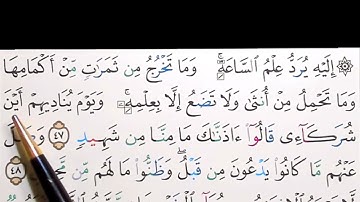 ۞ إِلَيْهِ يُرَدُّ عِلْمُ ٱلسَّاعَةِۚ وَمَا تَخْرُجُ مِن ثَمَرَٰتٍ مِّنْ أَكْمَامِهَا
وَمَا تَحْمِلُ مِنْ أُنثَىٰ وَلَا تَضَعُ إِلَّا بِعِلْمِهِۦۚ وَيَوْمَ يُنَادِيهِمْ أَيْنَ
شُرَكَآءِى قَالُوٓا۟ ءَاذَنَّٰكَ مَا مِنَّا مِن شَهِيدٍ ٤٧ وَضَلَّ
عَنْهُم مَّا كَانُوا۟ يَدْعُونَ مِن قَبْلُۖ وَظَنُّوا۟ مَا لَهُم مِّن مَّحِيصٍ ٤٨